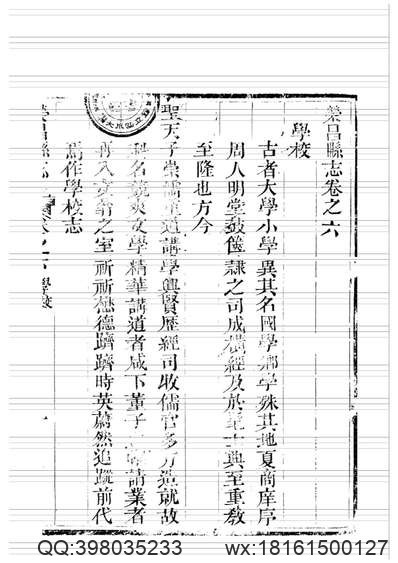 榮昌縣志卷之六
學校
古者大學小學異其名國學鄉學殊其地夏商庠序
周人明堂鼓篋隸之司成橫經及於 士典至重教
至隆也方今
聖天子崇儒 道講學興賢歷經司牧儒官多方造就故
名 文學精華講道者咸下董子 請業者
再入 翁之室祈祈懋德躋躋時英蔚然追蹤前代
焉作學校志
榮昌縣志 卷之六 學校
QQ:398035233 wx:18161500127